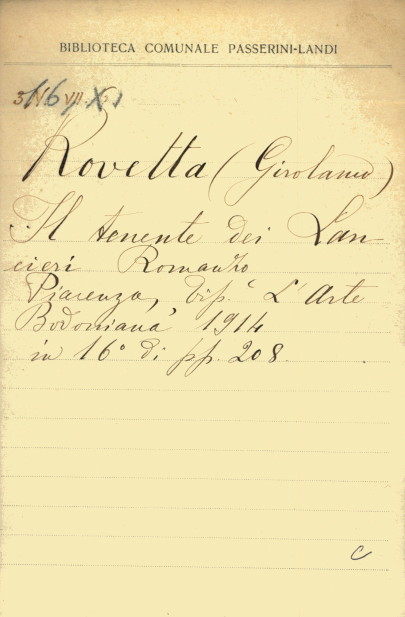 BIBLIOTECA COMUNALE PASSERINI-LANDI
Rovetta (Girolamo)
Il tenente dei Lan-
cieri Romanzo
Piacenza, Tip.ª L'Arte
Bodoniana 1914
in 16° di pp. 208.
C